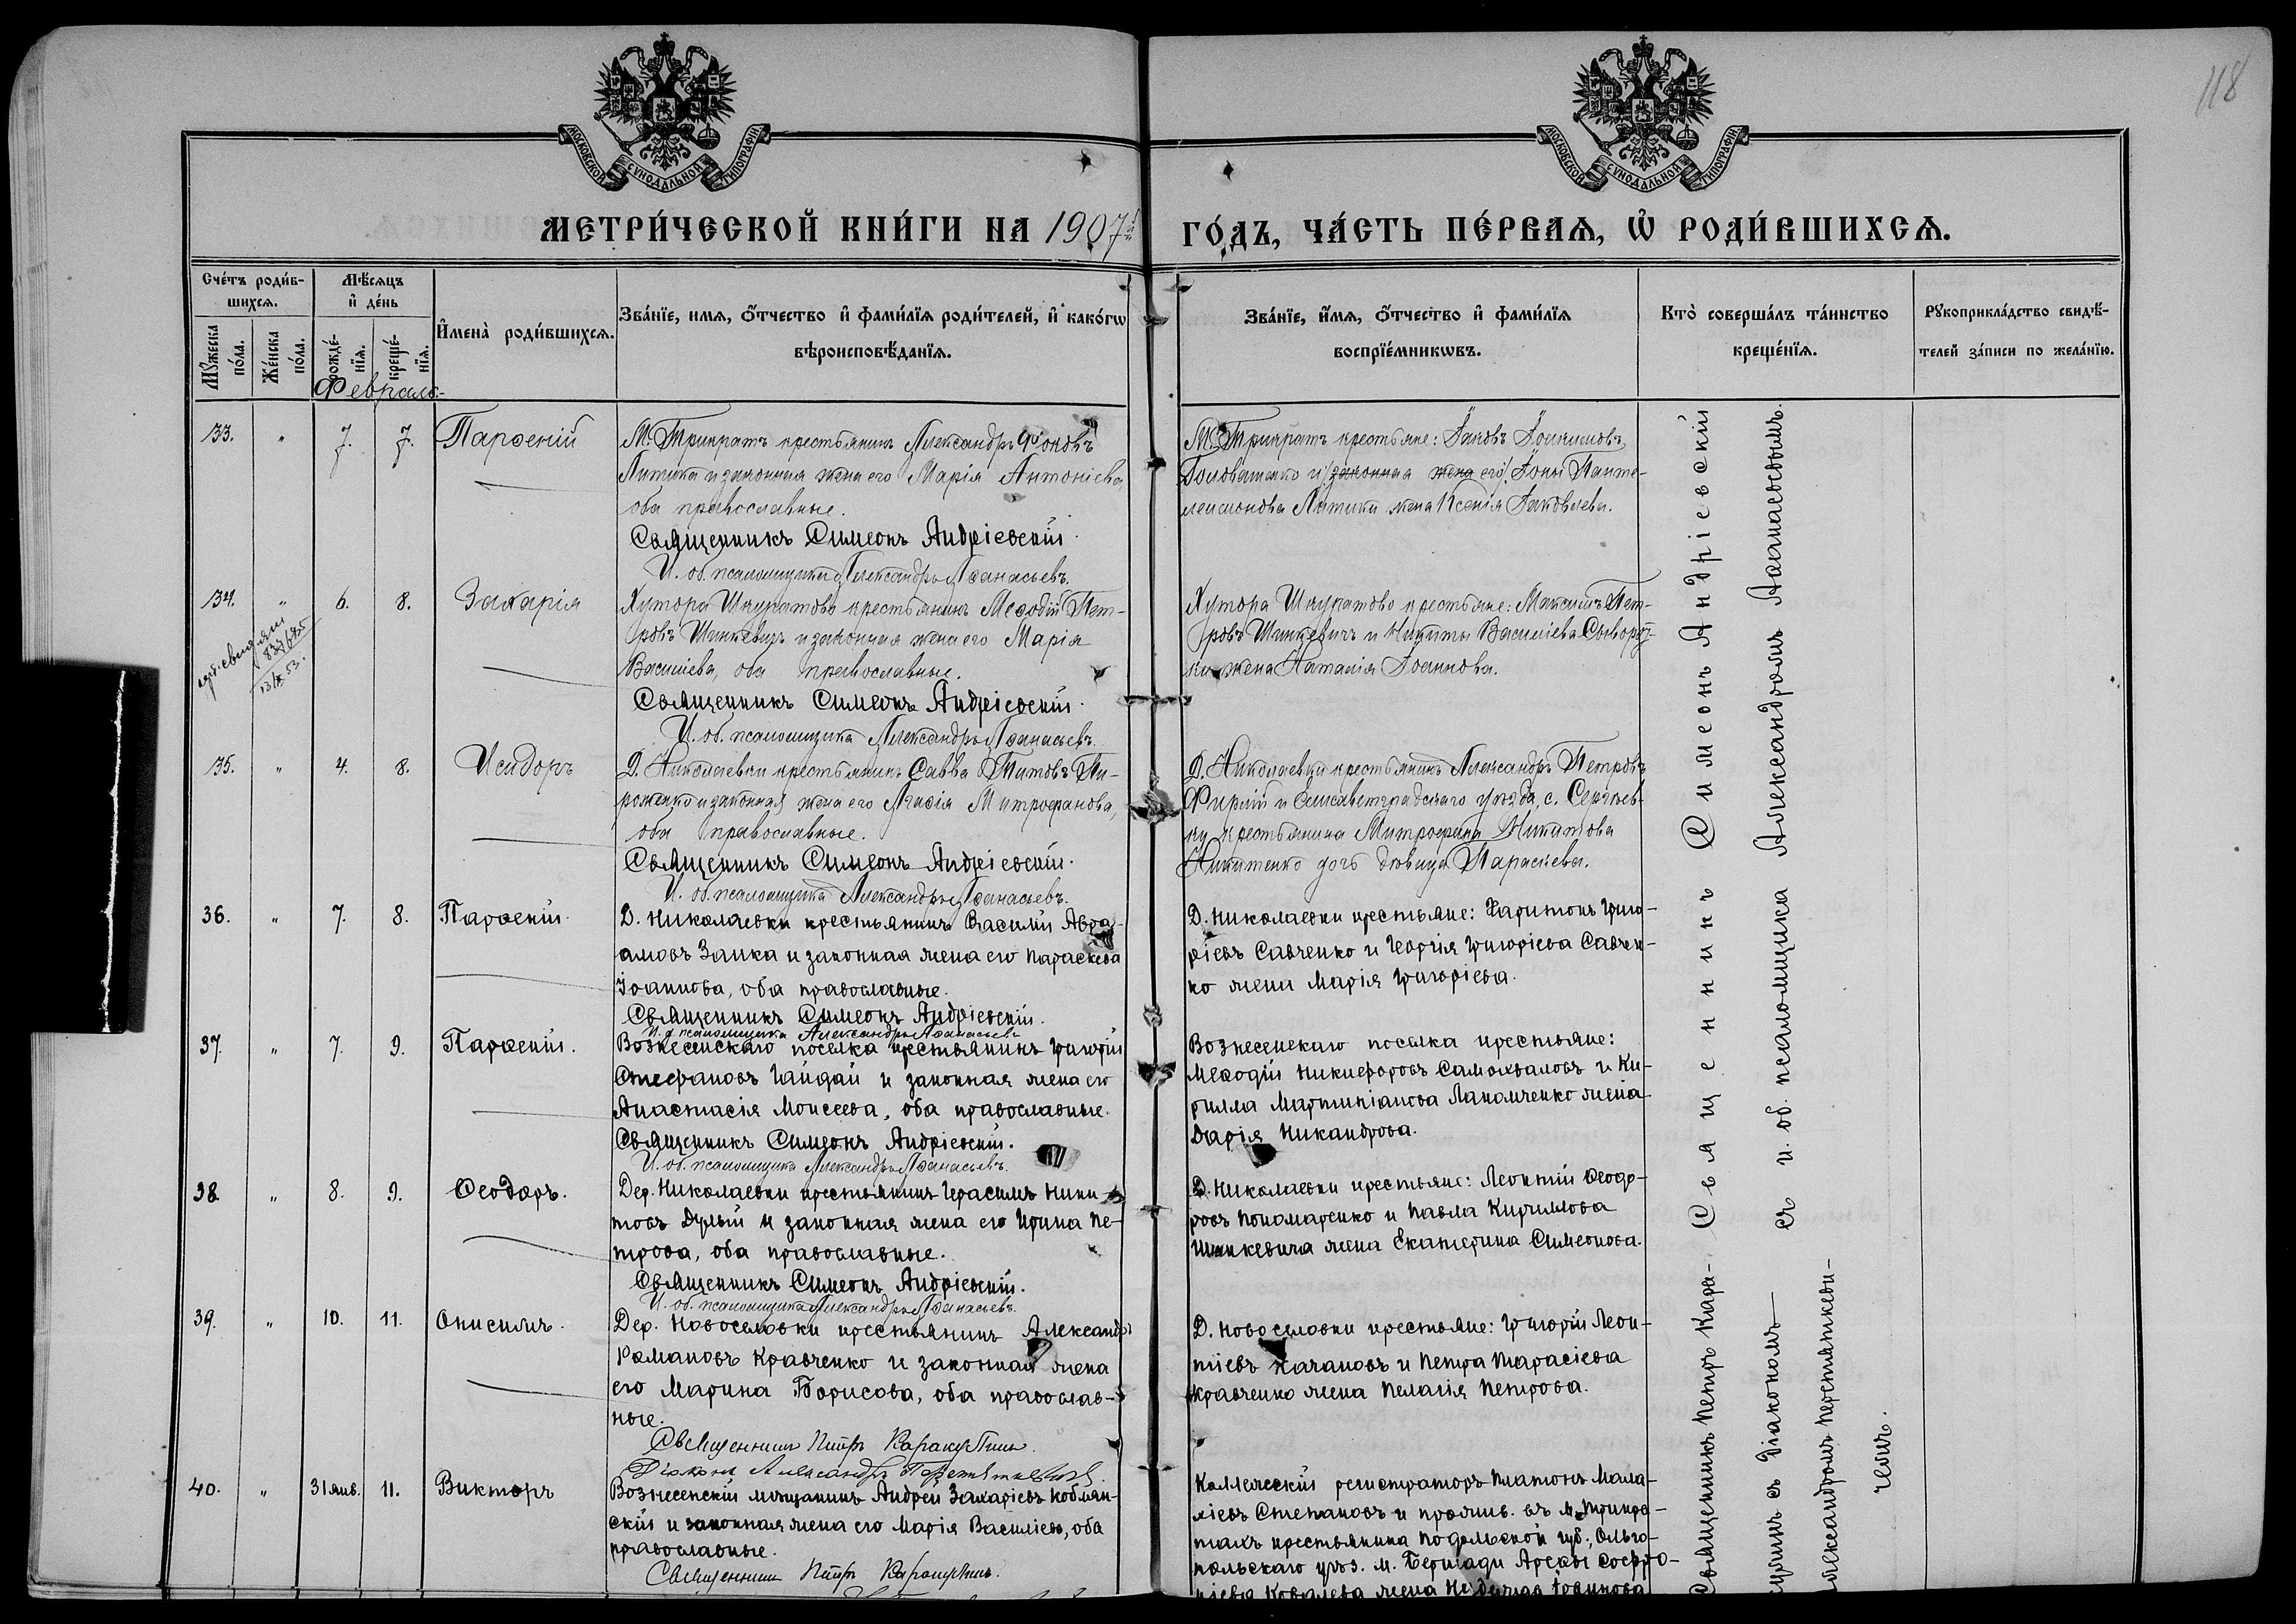 118
МОСКОВСКОЙ СѴНОДАЛЬНОЙ ТИПОГРАФІИ
МОСКОВСКОЙ СѴНОДАЛЬНОЙ ТИПОГРАФІИ
МЕТРИ́ЧЕСКОЙ КНИ́ГИ НА 1907й ГО́ДЪ, ЧА́СТЬ ПЕ́РВАѦ, Ѡ РОДИ́ВШИХСѦ.
Сче́тъ роди́в-
шихсѧ.
Мꙋжеска
по́ла.
Же́нска
по́ла.
Мѣ́сѧцъ
и де́нь
рожде́-
нїѧ.
креще́-
нїѧ.
Имена̀ роди́вшихсѧ.
Зва́нїе, имѧ, о́тчество и фами́лїѧ роди́телей, и како́гѡ
вѣроисповѣ́данїѧ.
Зва́нїе, и́мѧ, о́тчество и фами́лїѧ
воспрїе́мникѡвъ.
Кто̀ соверша́лъ та́инство
креще́нїѧ.
Рꙋкоприкла́дство свидѣ́-
телей за́писи по жела́нїю.
Февраль
33. " 7. 7. Парѳеній
М. Трикратъ крестьянинъ Александръ
Литика и законная жена его Марія Антоніева,
оба православные.
Священникъ Симеонъ Андріевскій.
И. об. псаломщика Александръ Аѳанасьевъ.
М. Трикратъ крестьяне: Іаковъ
Головатенко и /законная жена его/ Іоны Панте-
леимонова Литики жена Ксенія Іаковлева.
34. " 6. 8. Захарія
Хутора Шкуратова крестьянинъ Меѳодій Пет-
ровъ Шинкевичъ и законная жена его Марія
Васильева, оба православные.
Священникъ Симеонъ Андріевскій.
И. об. псаломщика Александръ Аѳанасьевъ.
Хутора Шкуратово крестьяне: Максимъ Пет-
ровъ Шинкевичъ и Никиты Василіева
жена Наталія Іоаннова.
35. " 4. 8. Исидоръ
Д. Николаевки крестьянинъ Савва Титовъ Пи-
роженко и законная жена его Агафія Митрофанова,
оба православные.
Священникъ Симеонъ Андріевскій.
И. об. псаломщика Александръ Аѳанасьевъ.
Д. Николаевки крестьянинъ Александръ Петровъ
и Елисаветградскаго уѣзда, с. Сергѣев-
ки крестьянина Митрофана Никитова
Никитенко дочь дѣвица Параскева.
36. " 7. 8. Парѳеній.
Д. Николаевки крестьянинъ Василій Авра-
амовъ Заика и законная жена его Параскева
Іоаннова, оба православные.
Священникъ Симеонъ Андріевскій.
И. д. псаломщика Александръ Аѳанасьевъ
Д. Николаевки крестьяне: Харитонъ Григо-
ріевъ Савченко и Георгія Григоріева Савчен-
ко жена Марія Григоріева.
37. " 7. 9. Парѳеній.
Вознесенскаго поселка крестьянинъ Григорій
Стефановъ Гайдай и законная жена его
Анастасія Моисеева, оба православные.
Священникъ Симеонъ Андріевскій.
И. об. псаломщика Александръ Аѳанасьевъ.
Вознесенскаго поселка крестьяне:
Меѳодій Никифоровъ Самохваловъ и Ки-
рилла Мартиніанова жена
Дарія Никандрова.
38. " 8. 9. Ѳеодоръ.
Дер. Николаевки крестьянинъ Герасимъ Ники-
товъ Дулый и законная жена его Ирина Пе-
трова, оба православные.
Священникъ Симеонъ Андріевскій.
И. об. псаломщика Александръ Аѳанасьевъ.
Д. Николаевки крестьяне: Леонтій Ѳеодо-
ровъ Пономаренко и Павла Кириллова
Шинкевича жена Екатерина Симеонова.
39. " 10. 11. Онисимъ.
Дер. Новоселовки крестьянинъ Александръ
Романовъ Кравченко и законная жена
его Марина Борисова, оба православ-
ные.
Священникъ Петръ Каракулинъ.
Діаконъ Александръ
Д. Новоселовки крестьяне: Григорій Леон-
тіевъ Качановъ и Петра Тарасіева
Кравченко жена Пелагія Петрова.
40. " 31 янв. 11. Викторъ
Вознесенскій мѣщанинъ Андрей Захаріевъ Коблян-
скій и законная жена его Марія Василіева, оба
православные.
Священникъ Петръ Каракулинъ.
Коллежскій регистраторъ Платонъ Мала-
хіевъ Степановъ и прожив. въ м. Трикра-
тахъ крестьянина Подольской губ., Ольго-
польскаго уѣз. м. Бершади Софро-
ніева Ковалева жена Іоаннова
Священникъ Симеонъ Андріевскій
съ и. об. псаломщика Александромъ Аѳанасьевымъ.
Священникъ Петръ Кара-
кулинъ съ Діакономъ
Александромъ Перетятькеви-
чемъ.